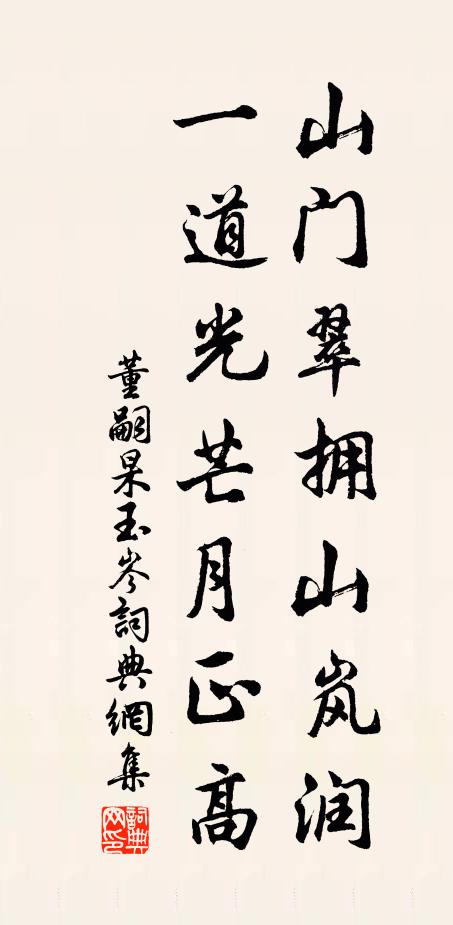 山门翠拥山岚润
一道光芒月正高
董嗣杲玉岑詞典網集
詞典网印